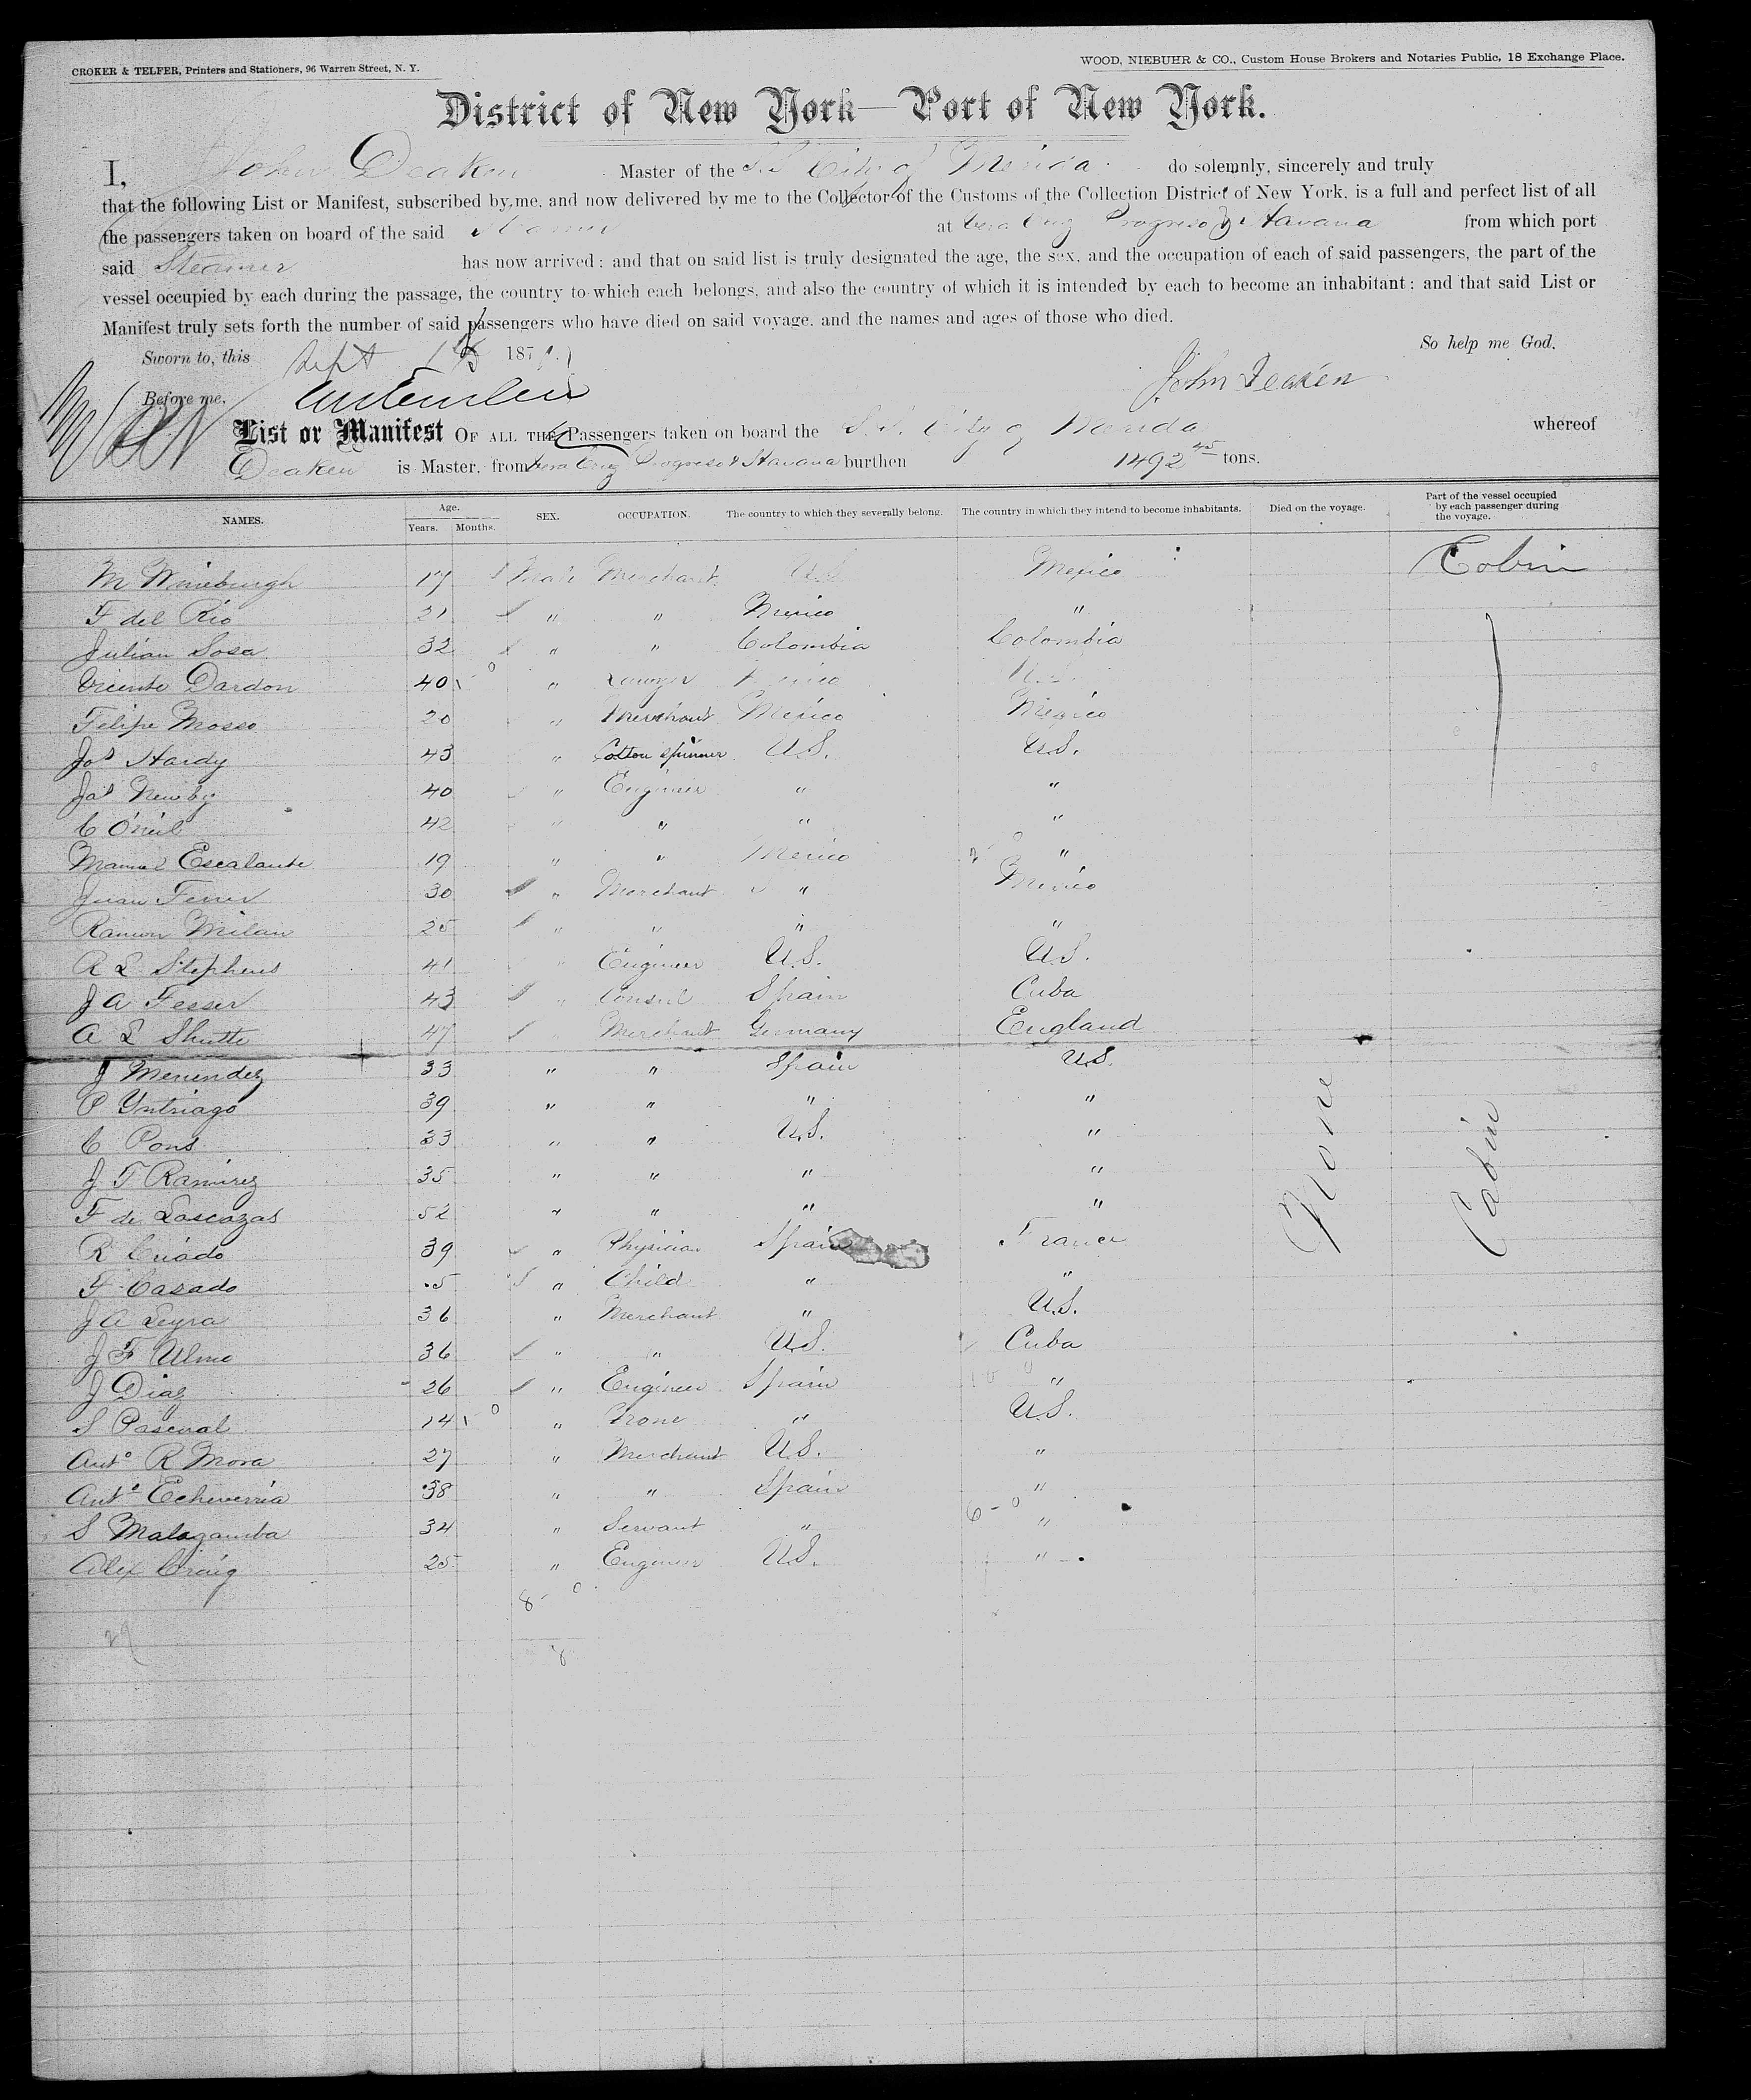 CROKER & TELFER, Printers and Stationers, 96 Warren Street, N. Y.
WOOD, NIEBUHR & CO., Custom House Brokers and Notaries Public, 18 Exchange Place.
District of New York—Port of New York.
I, John Deaken Master of the S.S. City of Merida do solemnly, sincerely and truly
that the following List or Manifest, subscribed by me, and now delivered by me to the Collector of the Customs of the Collection District of New York, is a full and perfect list of all
the passengers taken on board of the said Steamer at Vera Cruz Progreso & Havana from which port
said Steamer has now arrived: and that on said list is truly designated the age, the sex, and the occupation of each of said passengers, the part of the
vessel occupied by each during the passage, the country to which each belongs, and also the country of which it is intended by each to become an inhabitant: and that said List or
Manifest truly sets forth the number of said passengers who have died on said voyage, and the names and ages of those who died.
Sworn to, this Sept 187 So help me God.
Before me, John Deaken
List or Manifest OF ALL THE Passengers taken on board the S.S. City of Merida whereof
Deaken is Master, from Vera Cruz Progreso & Havana burthen 1492 45 tons.
NAMES. Age. Years. Months. SEX. OCCUPATION. The country to which they severally belong. The country in which they intend to become inhabitants. Died on the voyage. Part of the vessel occupied by each passenger during the voyage.
M Wineburgh 17 Male Merchant U.S. Mexico Cabin
F del Rio 21 " " Mexico "
Julian Sosa 32 " " Colombia Colombia
Vicente Dardon 40 " Lawyer Mexico U.S.
Felipe Mosso 20 " Merchant Mexico Mexico
Jos Hardy 43 " Cotton Spinner U.S. U.S.
Jas Newby 40 " Engineer " "
C O'neil 42 " " " "
Manuel Escalante 19 " " Mexico "
Juan Ferrer 30 " Merchant " Mexico
Ramon Milan 25 " " " "
R L Stephens 41 " Engineer U.S. U.S.
J A Fesser 43 " Consul Spain Cuba
A L Shutte 47 " Merchant Germany England
J Menendez 33 " " Spain U.S.
P Yntriago 39 " " " "
C Pons 33 " " U.S. "
J T Ramirez 35 " " " "
F de Lascazas 52 " " " "
R Criado 39 " Physician Spain France
F Casado 5 " Child " "
J A Leyra 36 " Merchant " U.S.
J F Ulmo 36 " " U.S. Cuba
J Diaz 26 " Engineer Spain "
S Pascual 14 " None " U.S.
Anto R Mora 27 " Merchant U.S. "
Anto Echeverria 38 " " Spain "
S Malagamba 34 " Servant " "
Alex Craig 25 " Engineer U.S. "
None
Cabin
6 - 0
8 - 0
29
8